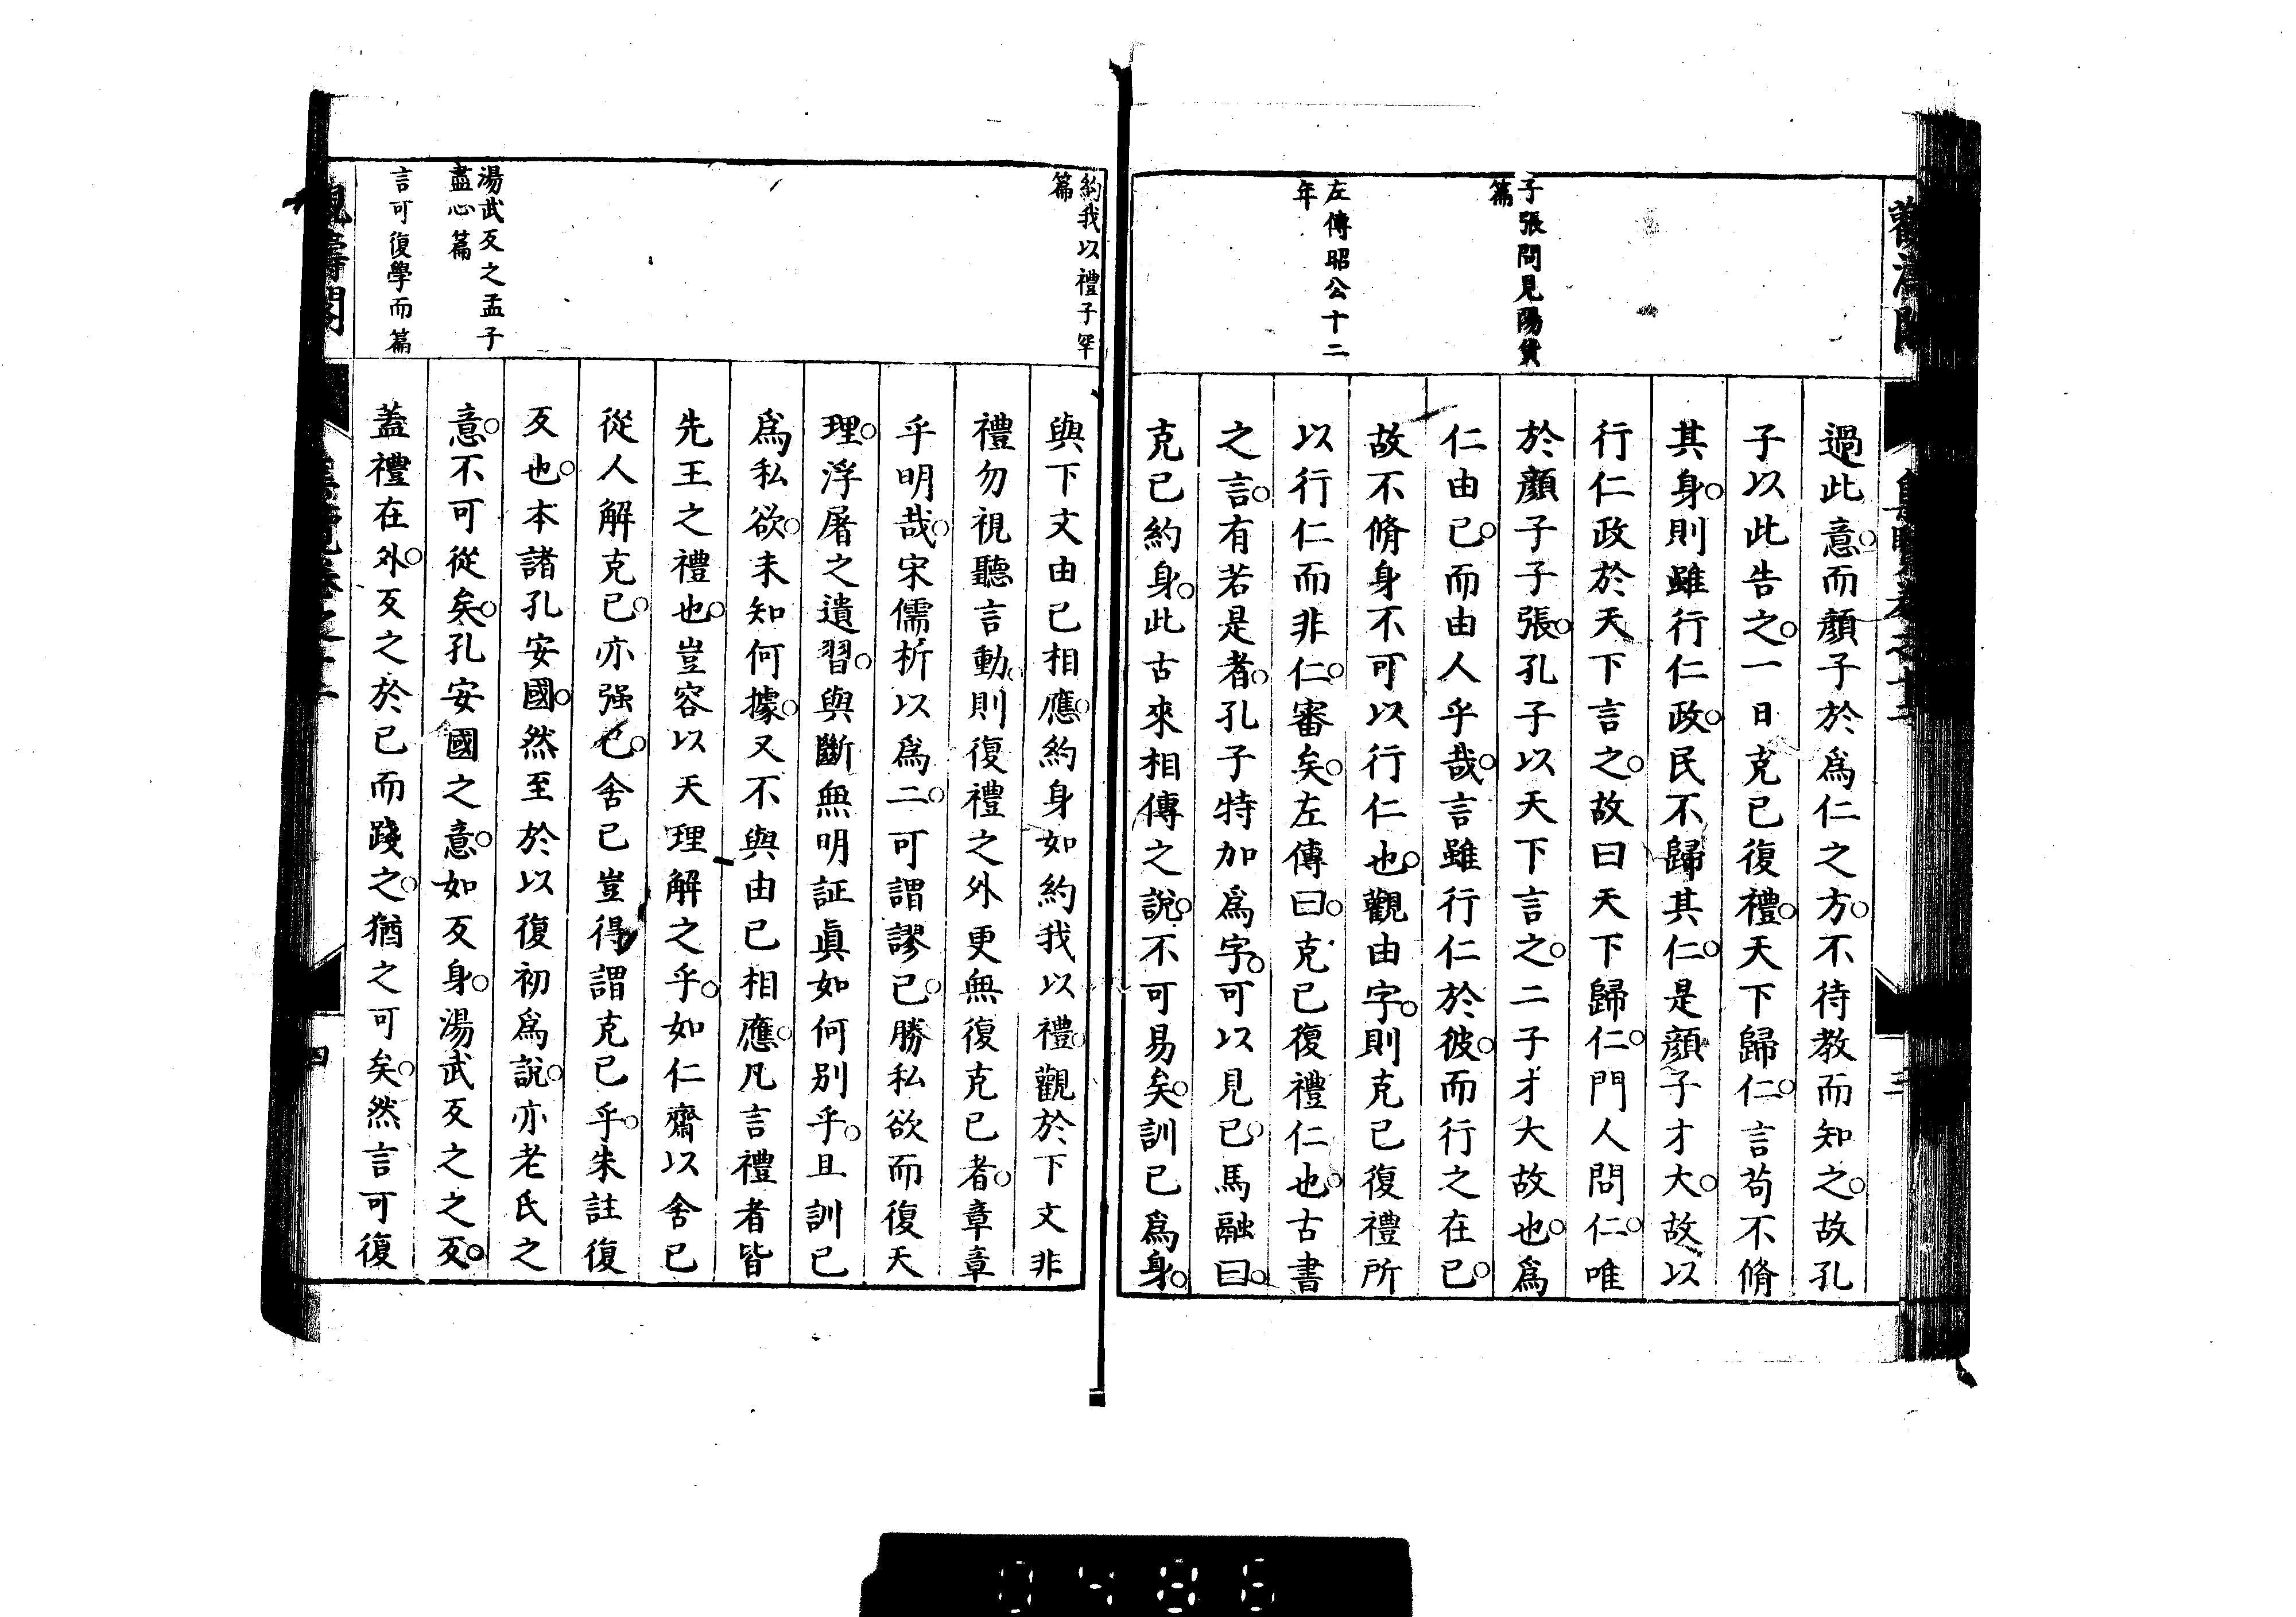 子張問見陽貨
篇
左傳昭公十二
年
過此意而顏子於爲仁之方不待教而知之故孔
子以此告之一日克己復禮天下歸仁言苟不脩
其身則雖行仁政民不歸其仁是顏子才大故以
行仁政於天下言之故曰天下歸仁門人問仁唯
於顏子子張孔子以天下言之二子才大故也爲
仁由己而由人乎哉言雖行仁於彼而行之在己
故不脩身不可以行仁也觀由字則克己復禮所
以行仁而非仁審矣左傳曰克己復禮仁也古書
之言有若是者孔子特加爲字可以見已馬融曰
克己約身此古來相傳之說不可易矣訓己爲身
三
約我以禮子罕
篇
湯武反之孟子
盡心篇
言可復學而篇
與下文由己相應約身如約我以禮觀於下文非
禮勿視聽言動則復禮之外更無復克己者章章
乎明哉宋儒析以爲二可謂謬已勝私欲而復天
理浮屠之遺習與斷無明証眞如何別乎且訓己
爲私欲未知何據又不與由己相應凡言禮者皆
先王之禮也豈容以天理解之乎如仁齋以舍己
從人解克己亦强也舍己豈得謂克己乎朱註復
反也本諸孔安國然至於以復初爲說亦老氏之
意不可從矣孔安國之意如反身湯武反之之反
蓋禮在外反之於己而踐之猶之可矣然言可復
四